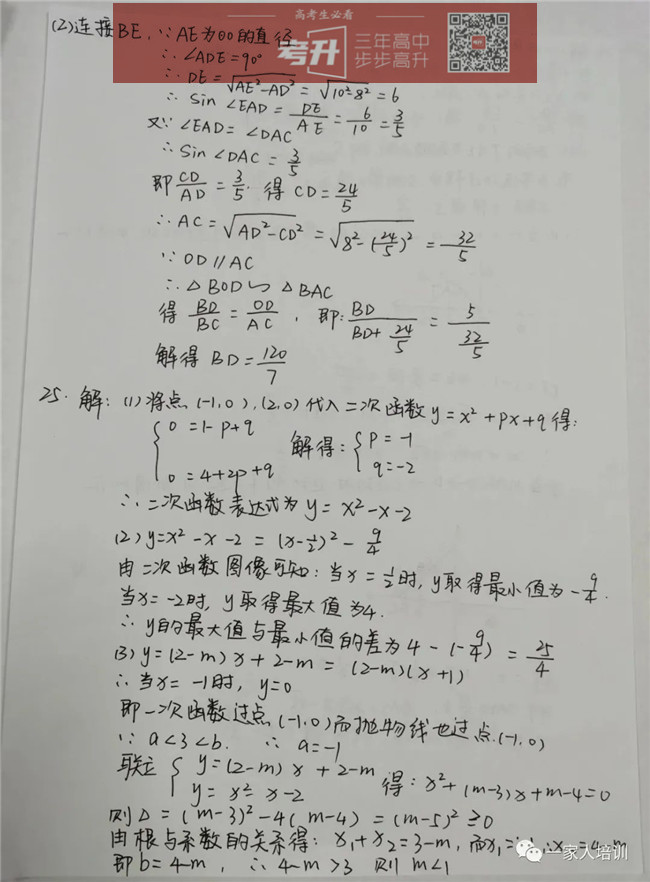 高考生必看
考升
三年高中
步步高升
(2)连接BE, ∵AE为⊙O的直径
∴∠ADE=90°
∴DE=√(AE²-AD²)=√(10²-8²)=6
∴Sin∠EAD=DE/AE=6/10=3/5
又∵∠EAD=∠DAC
∴Sin∠DAC=3/5
即CD/AD=3/5. 得CD=24/5
∴AC=√(AD²-CD²)=√(8²-(24/5)²)=32/5
∵OD∥AC
∴△BOD∽△BAC
得BD/BC=OD/AC, 即:BD/(BD+24/5)=5/(32/5)
解得BD=120/7
25. 解: (1)将点(-1,0),(2,0)代入二次函数y=x²+px+q得:
{0=1-p+q 解得:{p=-1
0=4+2p+q q=-2
∴二次函数表达式为y=x²-x-2
(2)y=x²-x-2=(x-1/2)²-9/4
由二次函数图像可知:当x=1/2时,y取得最小值为-9/4.
当x=-2时,y取得最大值为4.
∴y的最大值与最小值的差为4-(-9/4)=25/4
(3)y=(2-m)x+2-m=(2-m)(x+1)
∴当x=-1时, y=0
即一次函数过点(-1,0)而抛物线也过点(-1,0)
∵a<3<b. ∴a=-1
联立{y=(2-m)x+2-m
y=x²-x-2 得:x²+(m-3)x+m-4=0
则Δ=(m-3)²-4(m-4)=(m-5)²≥0
由根与系数的关系得: x₁+x₂=3-m, 而x₁=-1,∴x₂=4-m
即b=4-m, ∴4-m>3 则m<1
一家人培训